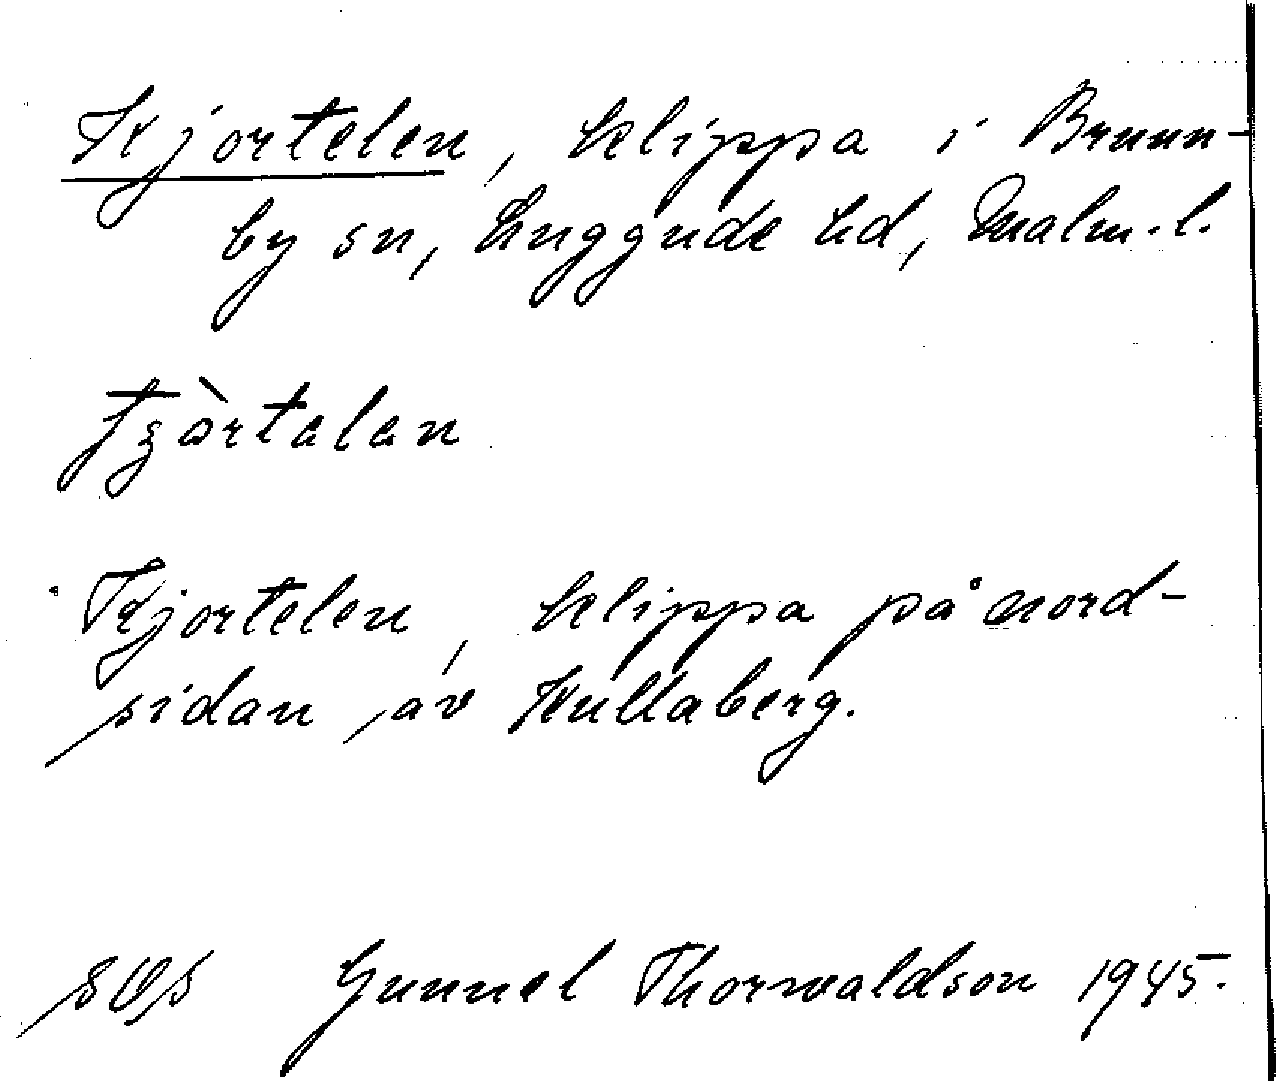 Kjortelen, klippa i Brunn-
by sn, Luggude hd, Malm. l.
tʒòrtalan
Kjortelen, klippa på nord-
sidan av Kullaberg.
Gunnel Thorwaldson 1945.